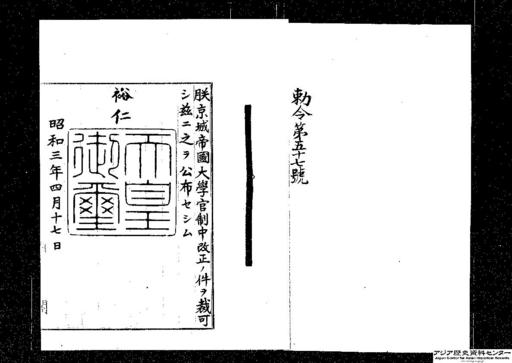 勅令第五十七號
朕京城帝國大學官制中改正ノ件ヲ裁可
シ茲ニ之ヲ公布セシム
裕仁
天皇御璽
昭和三年四月十七日
アジア歴史資料センター
Japan Center for Asian Historical Records